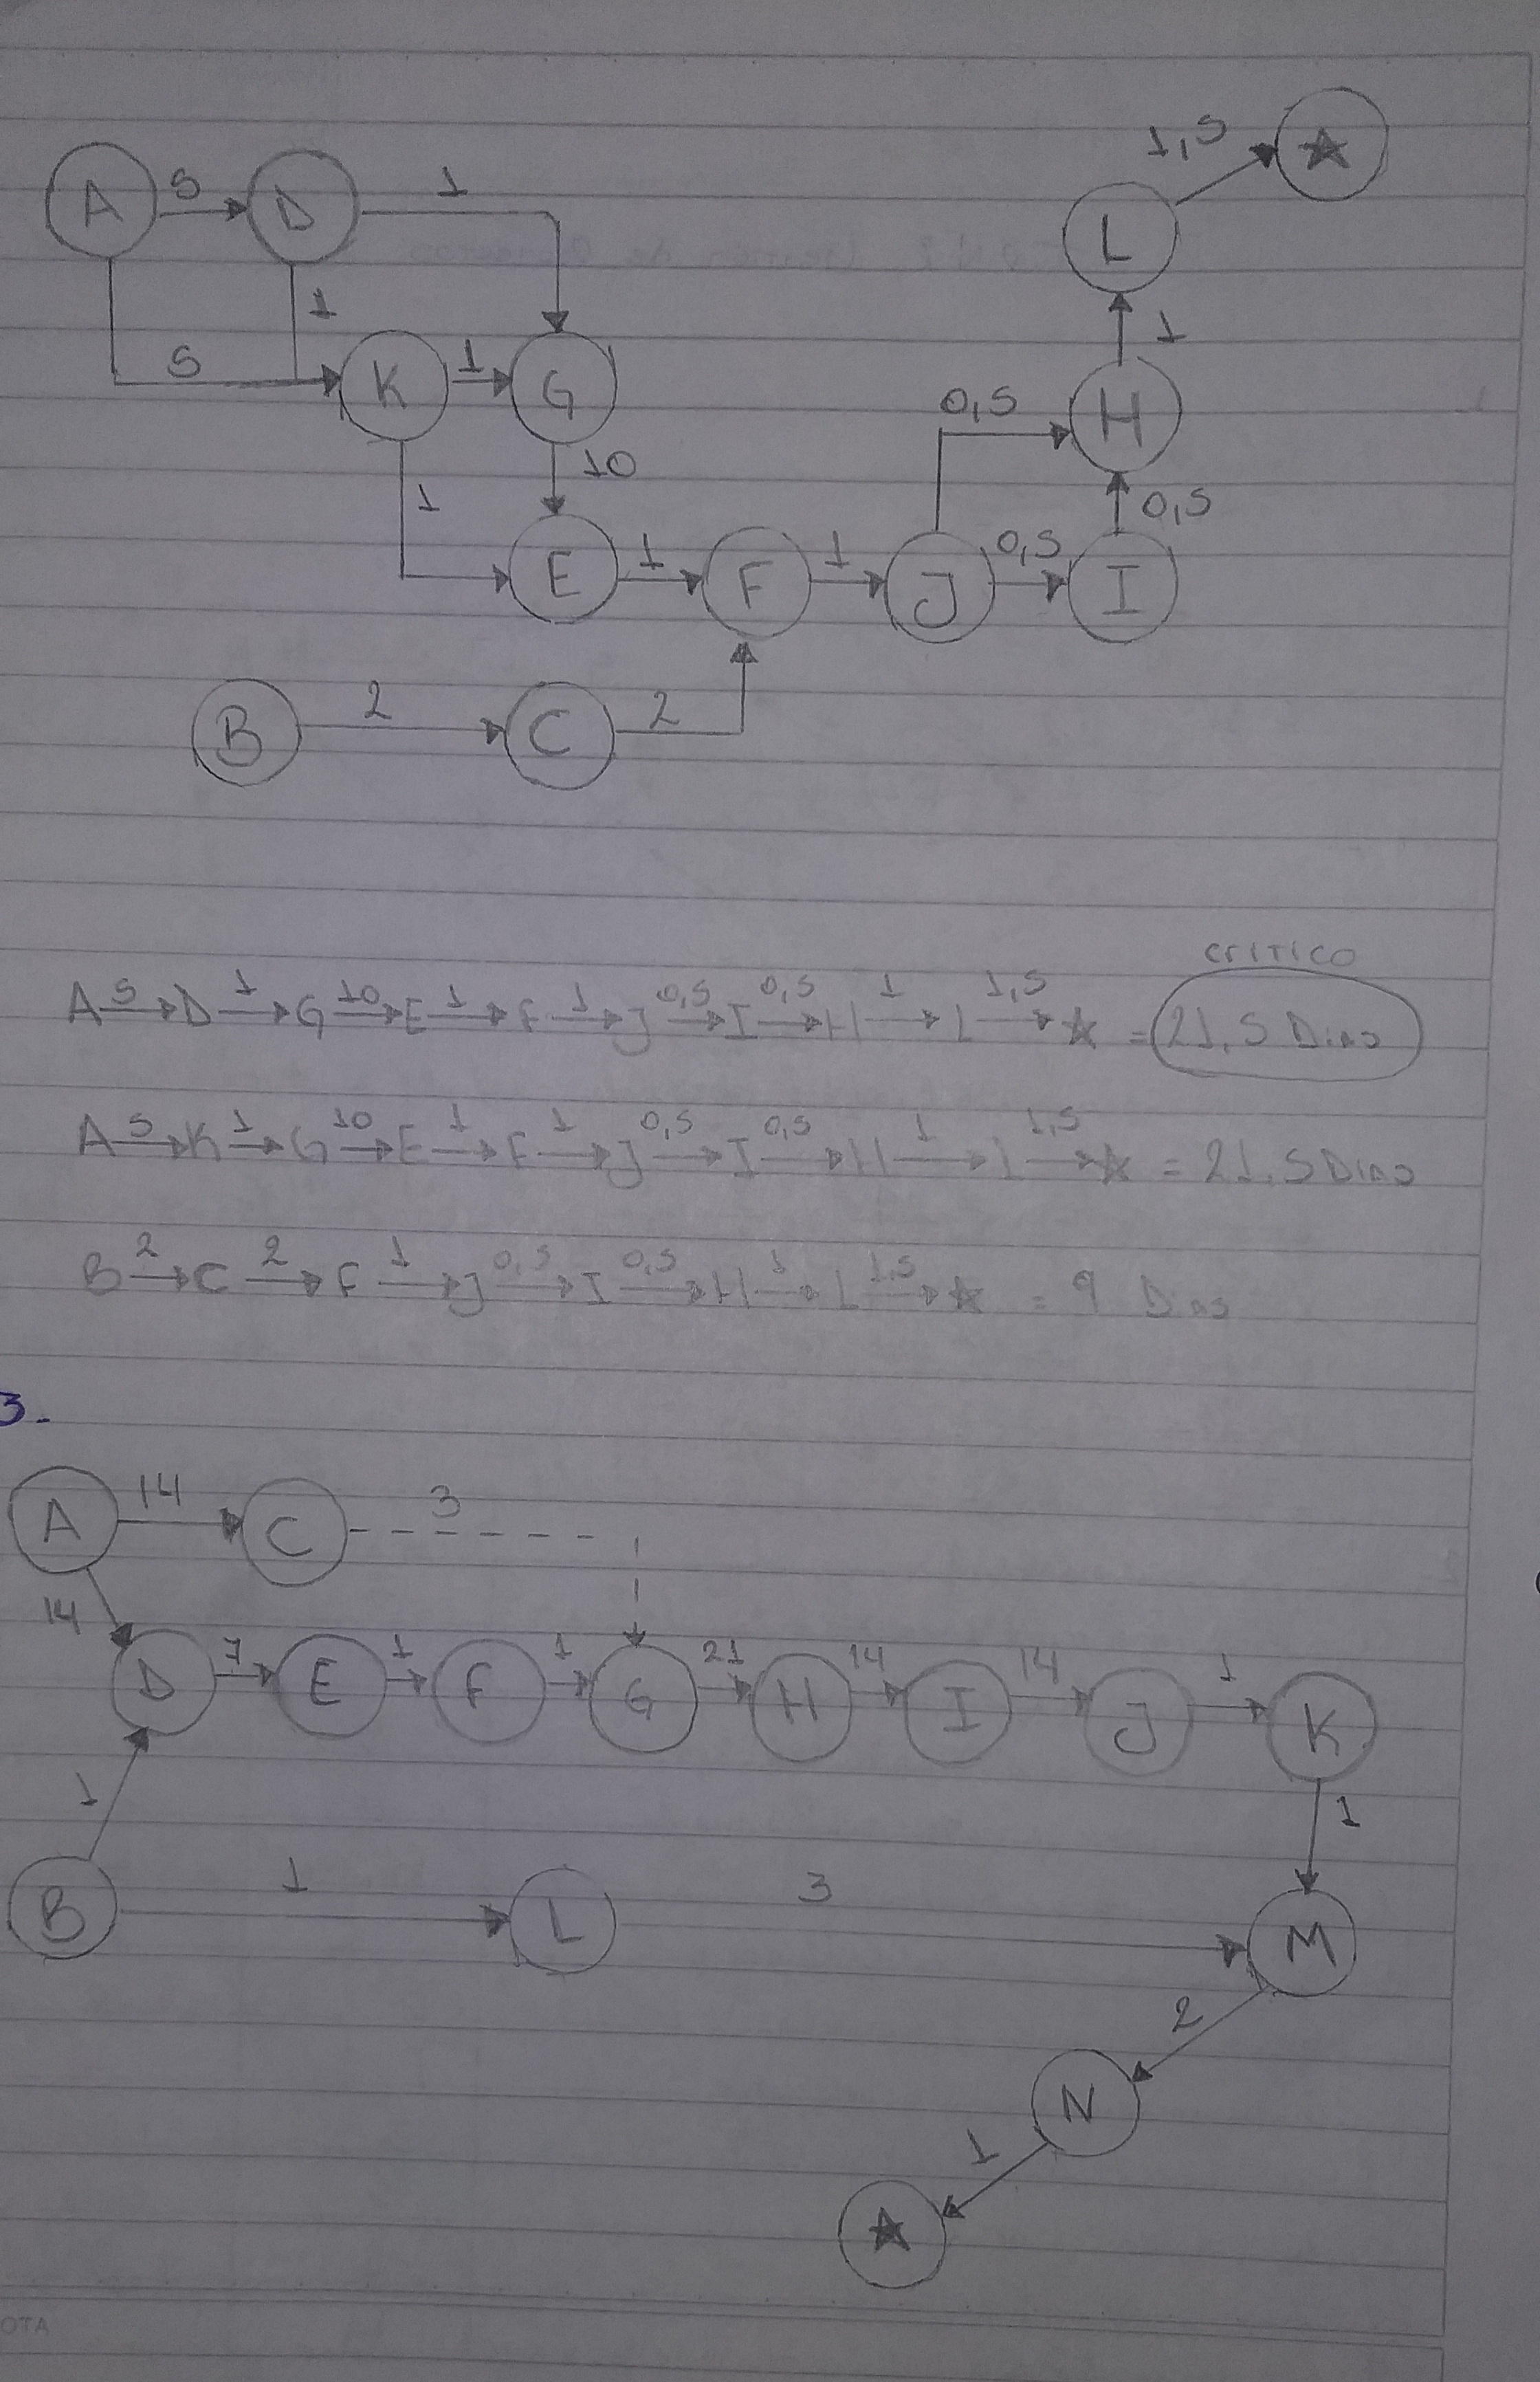 1,5 ★
A 5 D 1
L
1
1
5 K 1 G 0,5 H
10
1 0,5
E 1 F 1 J 0,5 I
B 2 C 2
CRITICO
A 5 D 1 G 10 E 1 F 1 J 0,5 I 0,5 H 1 L 1,5 ★ = 21,5 Dias
A 5 K 1 G 10 E 1 F 1 J 0,5 I 0,5 H 1 L 1,5 ★ = 21,5 Dias
B 2 C 2 F 1 J 0,5 I 0,5 H 1 L 1,5 ★ = 9 Dias
3.
A 14 C 3
14
D 7 E 1 F 1 G 21 H 14 I 14 J 1 K
1 1
B 1 L 3 M
2
N
1
★
OTA